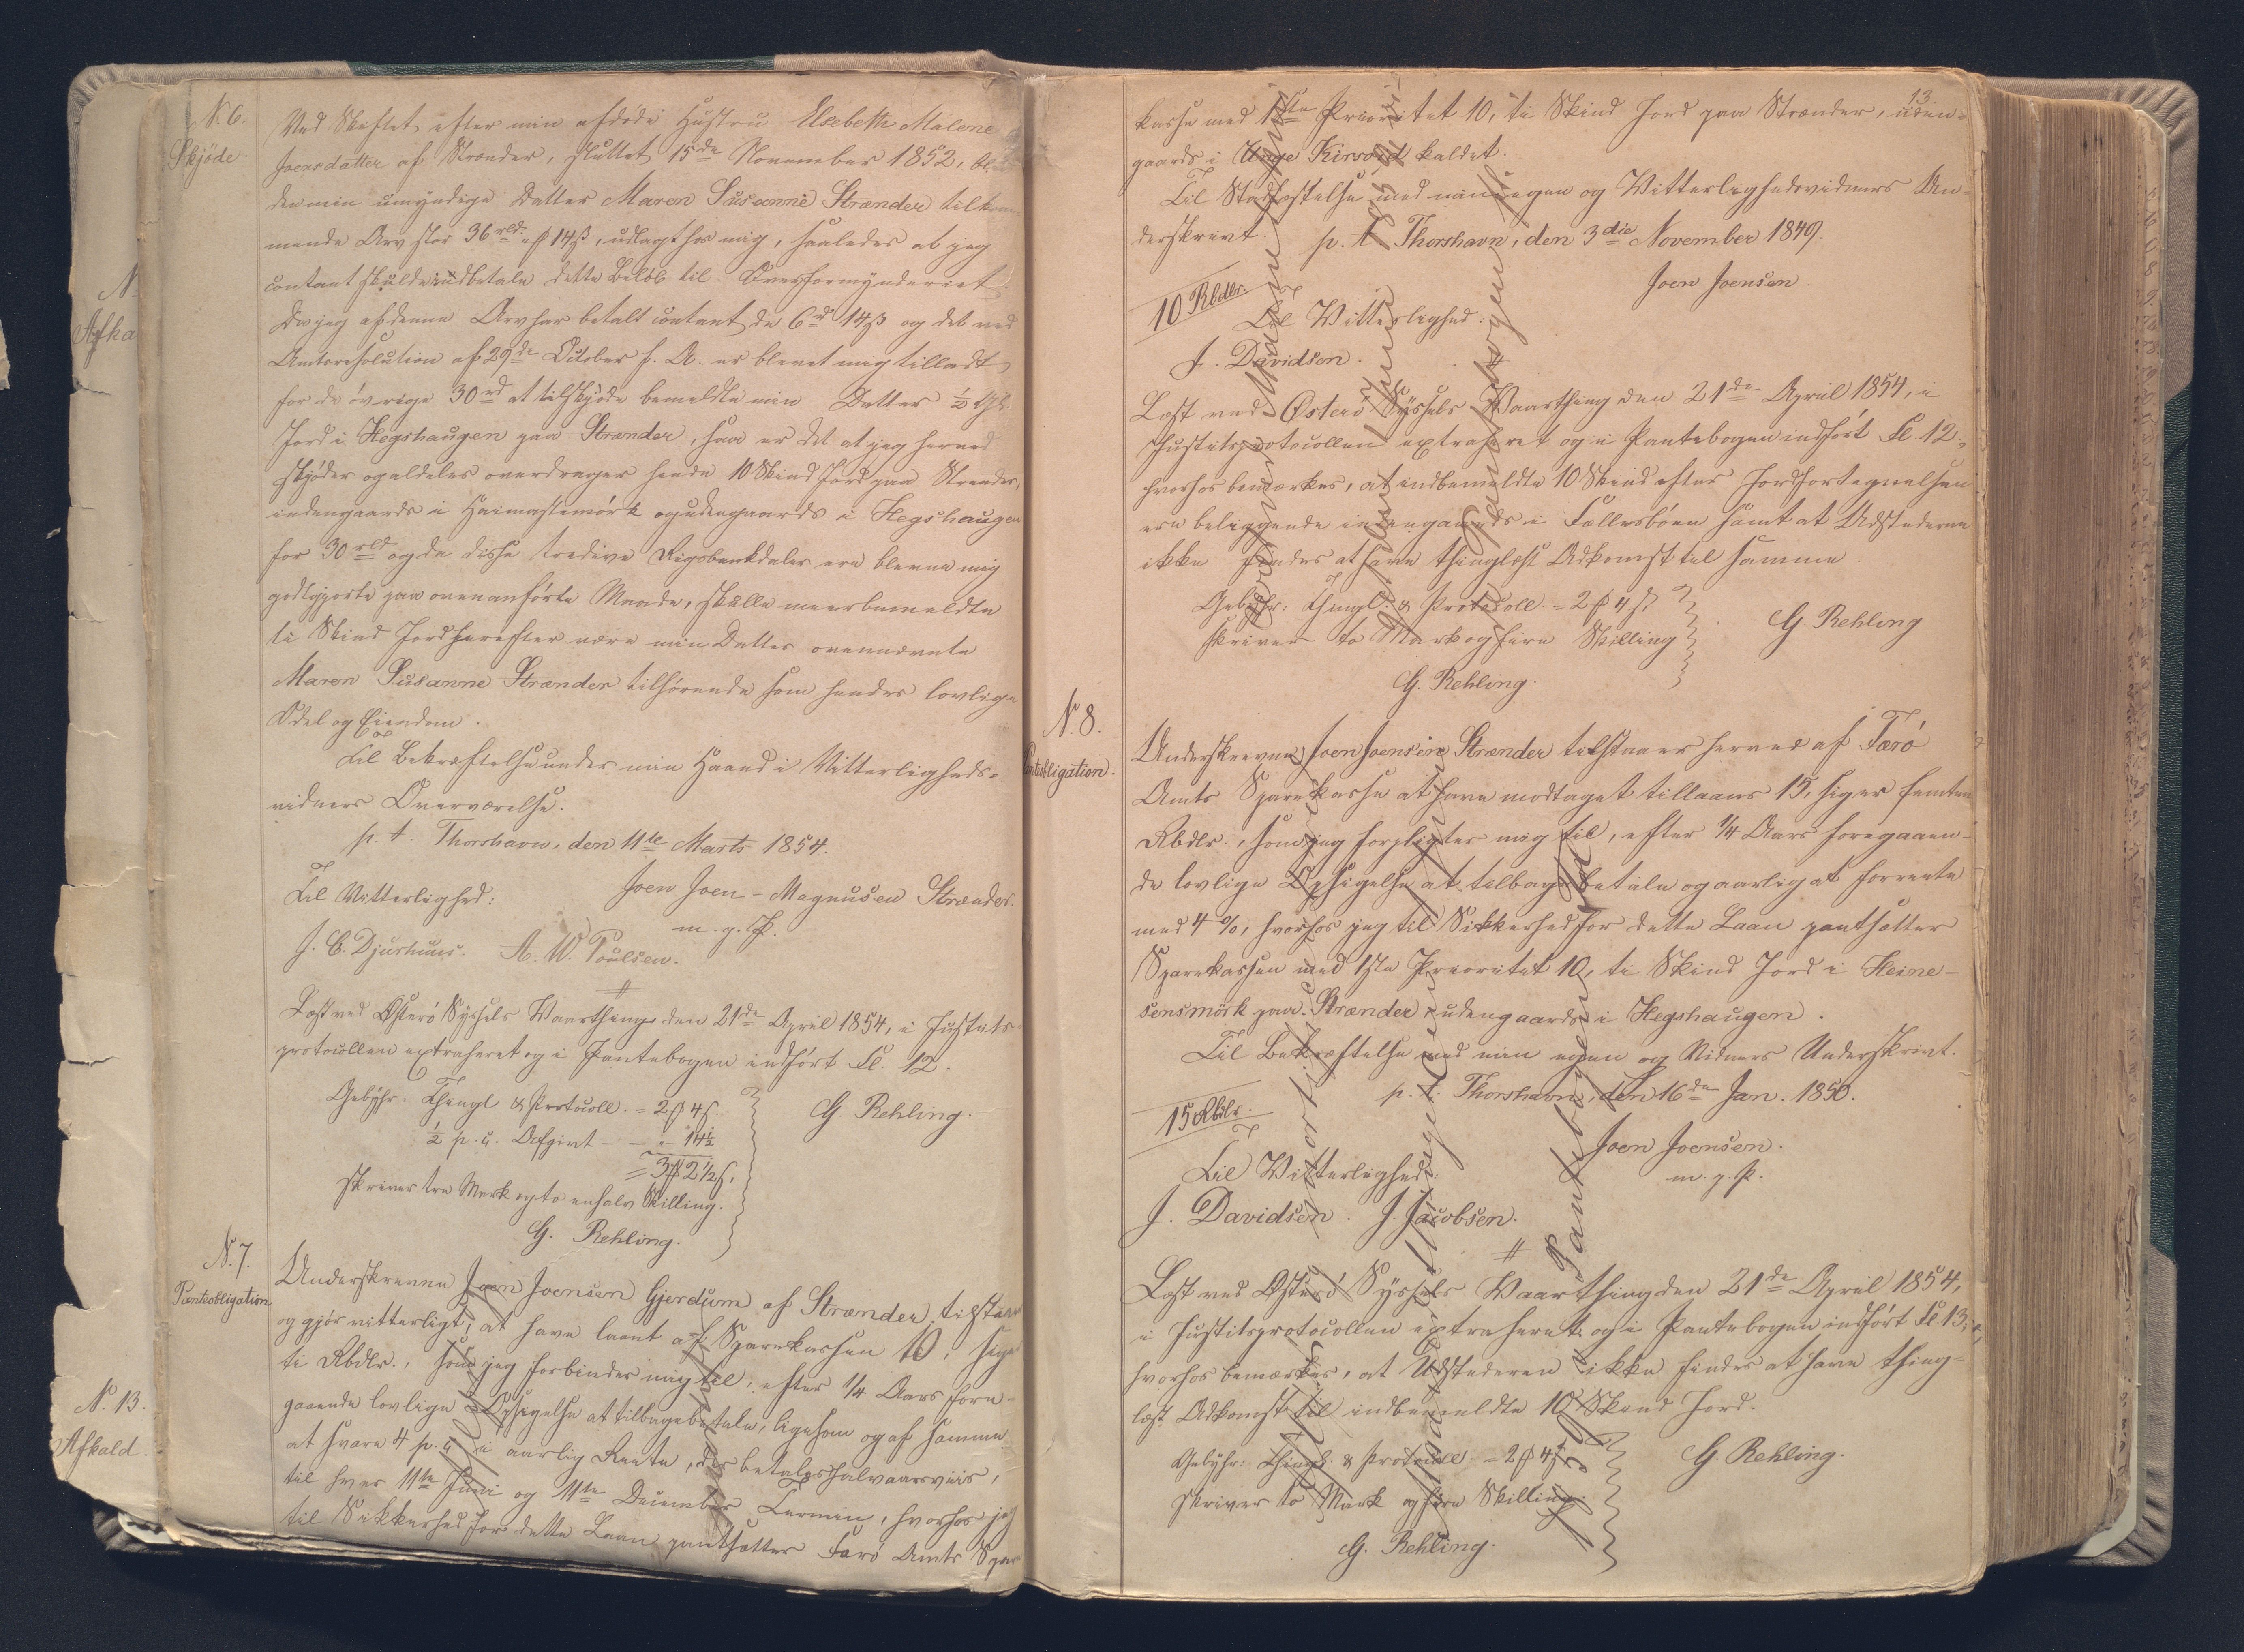 N. 6.
Skjöde.
Ved Skiftet efter min afdöde Hustru Elsebeth Malene
Joensdatter af Strænder, sluttet 15de November 1852, blev
den min umyndige Datter Maren Susanne Strænder tilkom-
mende Arv stor 36 rbd. 14 ß, udlagt hos mig, saaledes at jeg
contant skulde indbetale dette Belöb til Overformynderiet.
Da jeg af denne Arv har betalt contant de 6 rd 14 ß og det ved
Amtsresolution af 29de October f. A. er blevet mig tilladt
for de övrige 30 rd at tilskjöde bemeldte min Datter ½ Gl.
Jord i Hegshaugen paa Strænder, saa er det at jeg herved
skjöder og aldeles overdrager hende 10 Skind Jord paa Strænder,
indengaards i Heimastemörk og udengaards i Hegshaugen
for 30 rbd og da disse tredive Rigsbankdaler ere blevne mig
godtgjorte paa ovenanförte Maade, skulle meerbemeldte
ti Skind Jord herefter være min Datter ovennævnte
Maren Susanne Strænder tilhörende som hendes lovlige
Odel og Eiendom.
Til Bekræftelse under min Haand i Vitterligheds-
vidners Overværelse.
p. t. Thorshavn, den 11te Marts 1854.
Til Vitterlighed:
Joen Joen-Magnusen Strænder.
m. p. P.
J. C. Djurhuus. A. W. Poulsen.
Læst ved Österö Syssels Vaarthing den 21de April 1854, i Justits-
protocollen extraheret og i Pantebogen indfört Fl. 12.
Gebyhr. Thingl & Protocoll. = 2 ß 4 s.
½ p. c. Afgivt - - " - 14½
= 3 ß 2½ s.
skriver tre Mark og to en halv Skilling.
G. Rehling.
G. Rehling.
N. 7.
Panteobligation
Underskrevne Joen Joensen Gjerdum af Strænder tilstaaer
og gjör vitterligt, at have laant af Sparekassen 10, siger
ti Rbdlr., som jeg forbinder mig til, efter 1/4 Aars fore-
gaaende lovlige Opsigelse at tilbagebetale, ligesom og af samme
at svare 4 p. c. i aarlig Rente, der betales halvaarsviis,
til hver 11te Juni og 11te December Termin, hvorhos jeg
til Sikkerhed for dette Laan pantsætter Færö Amts Spare-
13
kasse med 1ste Prioritet 10, ti Skind Jord paa Strænder, uden-
gaards i Kirvoid kaldet.
Til Stadfæstelse med min egen og Vitterlighedsvidners Un-
derskrivt.
p. t. Thorshavn, den 3die November 1849.
Joen Joensen.
10 Rbdlr.
Til Vitterlighed:
J. Davidsen.
Læst ved Österö Syssels Vaarthing den 21de April 1854, i
Justitsprotocollen extraheret og i Pantebogen indfört Fl. 12,
hvorhos bemærkes, at indbemeldte 10 Skind efter Jordfortegnelsen
ere beliggende indengaards i Fællesböen samt at Udstederen
ikke findes at have thinglæst Adkomst til samme.
Gebyhr: Thingl. & Protocoll. = 2 ß 4 s.
skriver to Mark og fire Skilling
G Rehling
G. Rehling.
N. 8.
Panteobligation.
Underskrevne Joen Joensen Strænder tilstaaer herved af Færö
Amts Sparekasse at have modtaget tillaans 15, siger femten
Rbdlr., som jeg forpligter mig til, efter 1/4 Aars foregaaen-
de lovlige Opsigelse at tilbagebetale og aarligat forrente
med 4 %, hvorhos jeg til Sikkerhed for dette Laan pantsætter
Sparekassen med 1ste Prioritet 10, ti Skind Jord i Heine-
sensmörk paa Strænder, udengaards i Hegshaugen.
Til Bekræftelse med min egen og Vidners Underskrivt.
p. t. Thorshavn, den 16de Jan. 1850.
15 Rbdlr.
Joen Joensen.
m. p. P.
Til Vitterlighed:
J. Davidsen. J. Jacobsen.
Læst ved Österö Syssels Vaarthing den 21de April 1854,
i Justitsprotocollen extraheret og i Pantebogen indfört Fl 13,
hvorhos bemærkes, at Udstederen ikke findes at have thing-
læst Adkomst til indbemeldte 10 Skind Jord.
Gebyhr: Thingl. & Protocoll. = 2 ß 4 s.
skriver to Mark og fire Skilling.
G. Rehling.
G. Rehling.
N. 13.
Afkald.